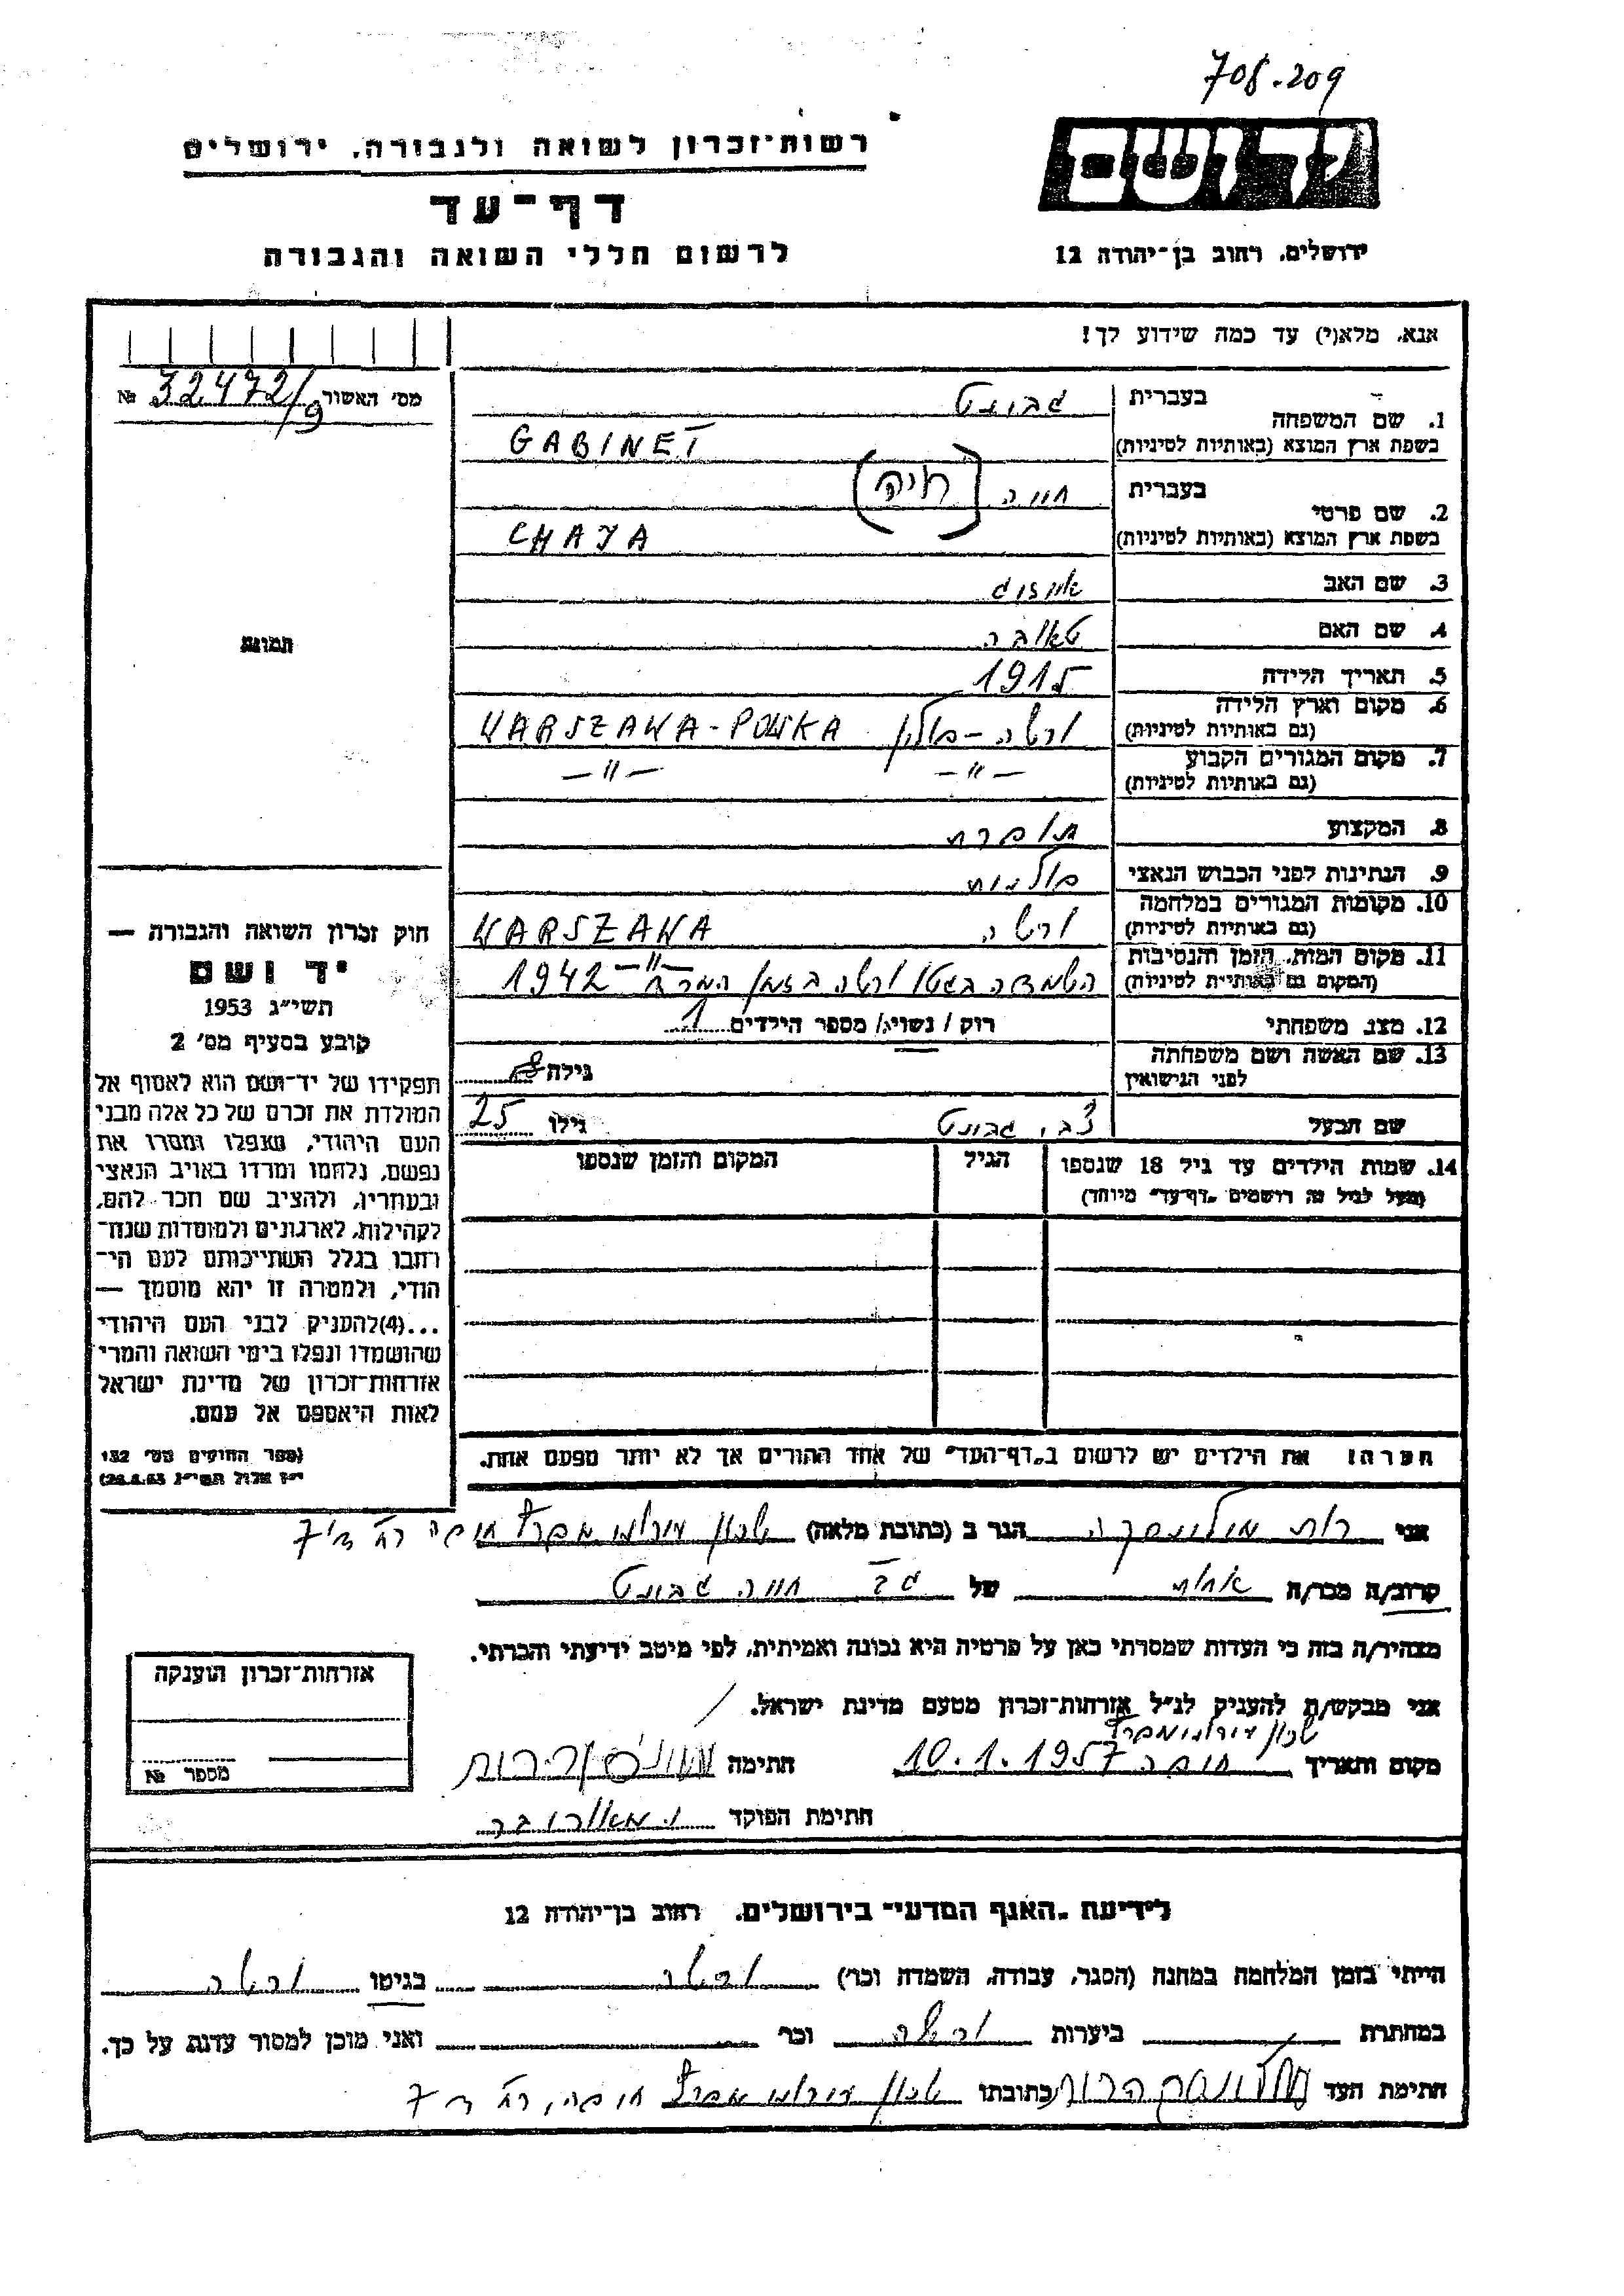 708.209
יד ושם
רשות־זכרון לשואה ולגבורה, ירושלים
דף־עד
לרשום חללי השואה והגבורה
ירושלים, רחוב בן־יהודה 12
אנא, מלא(י) עד כמה שידוע לך!
מס׳ האשור 32472/9 №
1. שם המשפחה בעברית גבינט
בשפת ארץ המוצא (באותיות לטיניות) GABINET
2. שם פרטי בעברית חווה (חיה)
בשפת ארץ המוצא (באותיות לטיניות) CHAJA
3. שם האב
4. שם האם טאובה
5. תאריך הלידה 1915
6. מקום וארץ הלידה ורשה - פולין WARSZAWA - POLSKA
(גם באותיות לטיניות)
7. מקום המגורים הקבוע -"- -"-
(גם באותיות לטיניות)
8. המקצוע תופרת
9. הנתינות לפני הכבוש הנאצי פולנית
10. מקומות המגורים במלחמה ורשה WARSZAWA
(גם באותיות לטיניות)
11. מקום המות, הזמן והנסיבות -"-
(המקום גם באותיות לטיניות) הושמדה בגטו ורשה בזמן המרד 1942
12. מצב משפחתי רוק / נשוי / מספר הילדים 1
13. שם האשה ושם משפחתה גילה
לפני הנישואין
שם הבעל צבי גבינט גילו 25
14. שמות הילדים עד גיל 18 שנספו הגיל המקום והזמן שנספו
(מעל לגיל זה רושמים „דף־עד״ מיוחד)
תמונה
חוק זכרון השואה והגבורה —
יד ושם
תשי״ג 1953
קובע בסעיף מס׳ 2
תפקידו של יד־ושם הוא לאסוף אל
המולדת את זכרם של כל אלה מבני
העם היהודי, שנפלו ומסרו את
נפשם, נלחמו ומרדו באויב הנאצי
ובעוזריו, ולהציב שם וזכר להם,
לקהילות, לארגונים ולמוסדות שנח־
רבו בגלל השתייכותם לעם הי־
הודי, ולמטרה זו יהא מוסמך —
...(4)להעניק לבני העם היהודי
שהושמדו ונפלו בימי השואה והמרי
אזרחות־זכרון של מדינת ישראל
לאות היאספם אל עמם.
(ספר החוקים מס׳ 132
י״ז אלול תשי״ג 28.8.53)
הערה: את הילדים יש לרשום ב„דף־העד״ של אחד ההורים אך לא יותר מפעם אחת.
אני רות הגר ב (כתובת מלאה) שכון חיפה 7
קרוב/ה מכר/ה אחות של גב׳ חווה גבינט
מצהיר/ה בזה כי העדות שמסרתי כאן על פרטיה היא נכונה ואמיתית, לפי מיטב ידיעתי והכרתי.
אני מבקש/ת להעניק לנ״ל אזרחות־זכרון מטעם מדינת ישראל.
שכון
מקום ותאריך חיפה 10.1.1957 חתימה
חתימת הפוקד
אזרחות־זכרון הוענקה
מספר №
לידיעת „האגף המדעי״ בירושלים, רחוב בן־יהודה 12
הייתי בזמן המלחמה במחנה (הסגר, עבודה, השמדה וכר) ורשה בגיטו ורשה
במחתרת ביערות ורשה וכר ואני מוכן למסור עדות על כך.
חתימת העד כתובתו שכון חיפה, 7